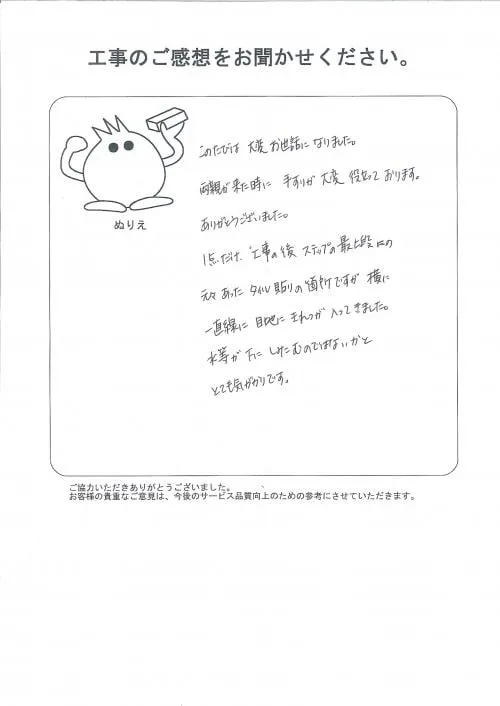 工事のご感想をお聞かせください。
ぬりえ
このたびは 大変 お世話に なりました。
両親が 来た時に 手すりが 大変 役立って おります。
ありがとうございました。
1点だけ、工事の後 ステップの最上段にの
元々 あった タイル貼りの箇所ですが 横に
一直線に 目地に きれつが 入ってきました。
水等が 下に しみこむのではないかと
とても気がかりです。
ご協力いただきありがとうございました。
お客様の貴重なご意見は、今後のサービス品質向上のための参考にさせていただきます。